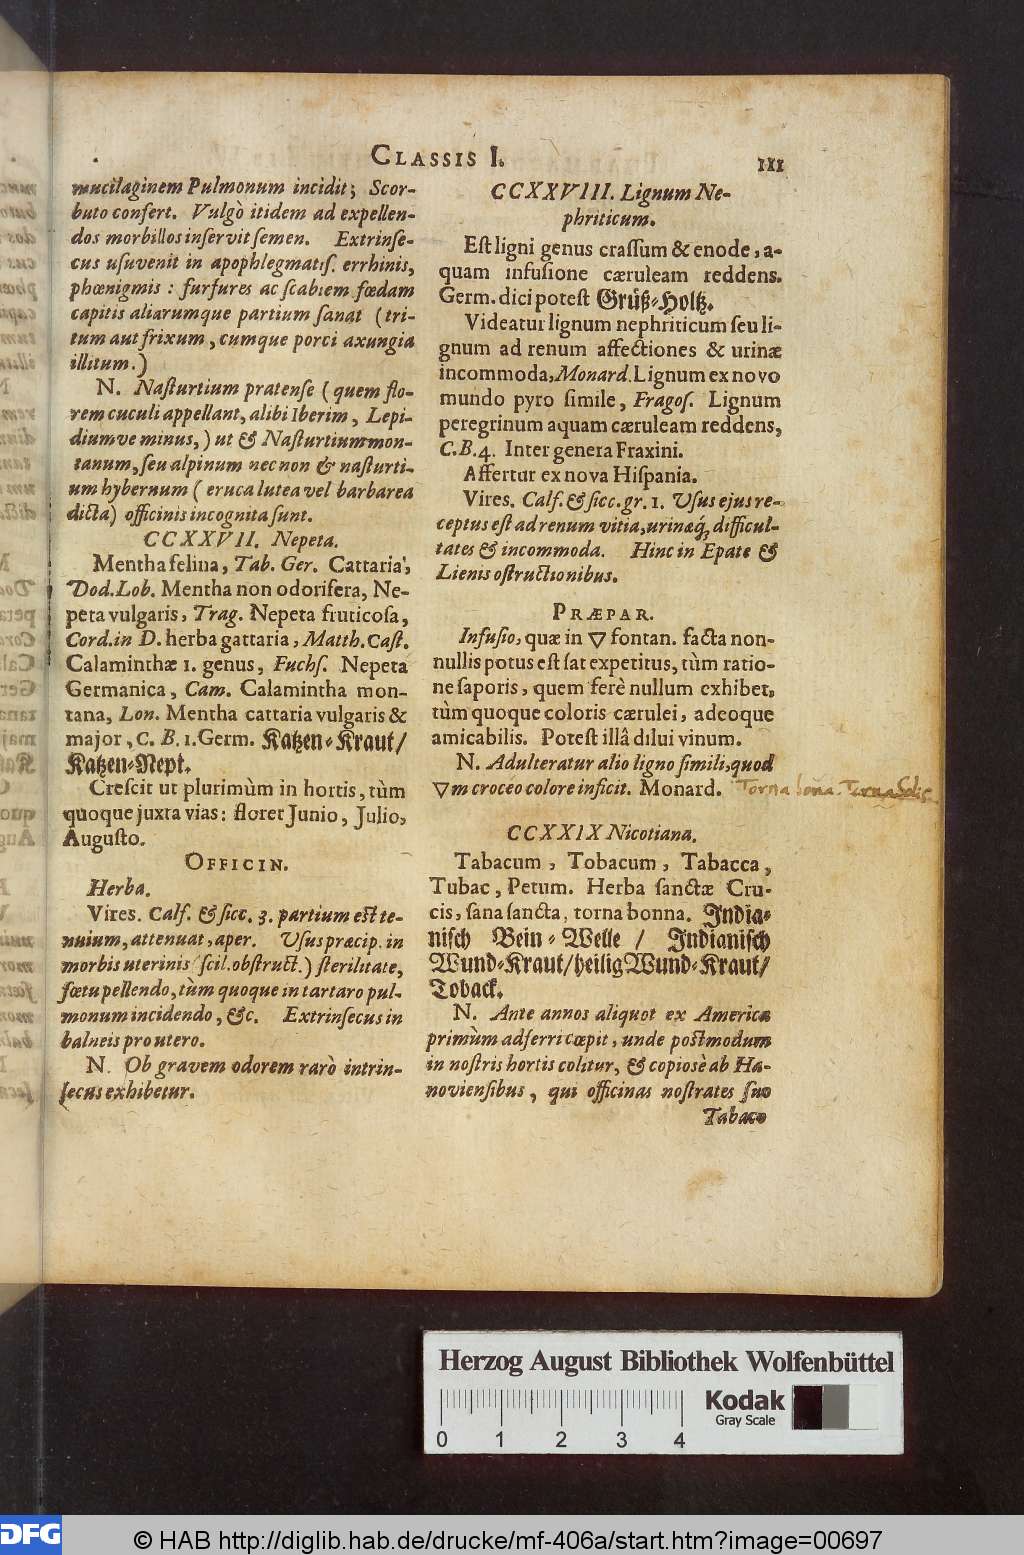 CLASSIS I.
111
mucilaginem Pulmonum incidit; Scor-
buto confert. Vulgò itidem ad expellen-
dos morbillos inservit semen. Extrinse-
cus usuvenit in apophlegmatis. errhinis,
phœnigmis : furfures ac scabiem fœdam
capitis aliarumque partium sanat (tri-
tum aut frixum, cumque porci axungia
illitum.)
N. Nasturtium pratense (quem flo-
rem cuculi appellant, alibi Iberim, Lepi-
diumve minus,) ut & Nasturtium mon-
tanum, seu alpinum nec non & nasturti-
um hybernum (eruca lutea vel barbarea
dicta) officinis incognita sunt.
CCXXVII. Nepeta.
Mentha felina, Tab. Ger. Cattaria,
Dod. Lob. Mentha non odorifera, Ne-
peta vulgaris, Trag. Nepeta fruticosa,
Cord. in D. herba gattaria, Matth. Cast.
Calaminthæ 1. genus, Fuchs. Nepeta
Germanica, Cam. Calamintha mon-
tana, Lon. Mentha cattaria vulgaris &
major, C. B. 1. Germ. Katzen-Kraut/
Katzen-Nept.
Crescit ut plurimùm in hortis, tùm
quoque juxta vias: floret Junio, Julio,
Augusto.
OFFICIN.
Herba.
Vires. Calf. & sicc. 3. partium est te-
nuium, attenuat, aper. Usus præcip. in
morbis uterinis (scil. obstruct.) sterilitate,
fœtu pellendo, tùm quoque in tartaro pul-
monum incidendo, &c. Extrinsecus in
balneis pro utero.
N. Ob gravem odorem rarò intrin-
secus exhibetur.
CCXXVIII. Lignum Ne-
phriticum.
Est ligni genus crassum & enode, a-
quam infusione cæruleam reddens.
Germ. dici potest Grüß-Holtz.
Videatur lignum nephriticum seu li-
gnum ad renum affectiones & urinæ
incommoda, Monard. Lignum ex novo
mundo pyro simile, Fragos. Lignum
peregrinum aquam cæruleam reddens,
C. B. 4. Inter genera Fraxini.
Affertur ex nova Hispania.
Vires. Calf. & sicc. gr. 1. Usus ejus re-
ceptus est ad renum vitia, urinæq; difficul-
tates & incommoda. Hinc in Epate &
Lienis ostructionibus.
PRÆPAR.
Infusio, quæ in ▽ fontan. facta non-
nullis potus est sat expetitus, tùm ratio-
ne saporis, quem ferè nullum exhibet,
tùm quoque coloris cærulei, adeoque
amicabilis. Potest illâ dilui vinum.
N. Adulteratur alio ligno simili, quod
▽m croceo colore inficit. Monard. Torna bona. Torna Solis
CCXXIX Nicotiana.
Tabacum, Tobacum, Tabacca,
Tubac, Petum. Herba sanctæ Cru-
cis, sana sancta, torna bonna. India-
nisch Bein-Welle / Indianisch
Wund-Kraut/ heilig Wund-Kraut/
Toback.
N. Ante annos aliquot ex America
primùm adferri cœpit, unde postmodum
in nostris hortis colitur, & copiosè ab Ha-
noviensibus, qui officinas nostrates suo
Tabaco
Herzog August Bibliothek Wolfenbüttel
0 1 2 3 4
Kodak
Gray Scale
DFG
© HAB http://diglib.hab.de/drucke/mf-406a/start.htm?image=00697